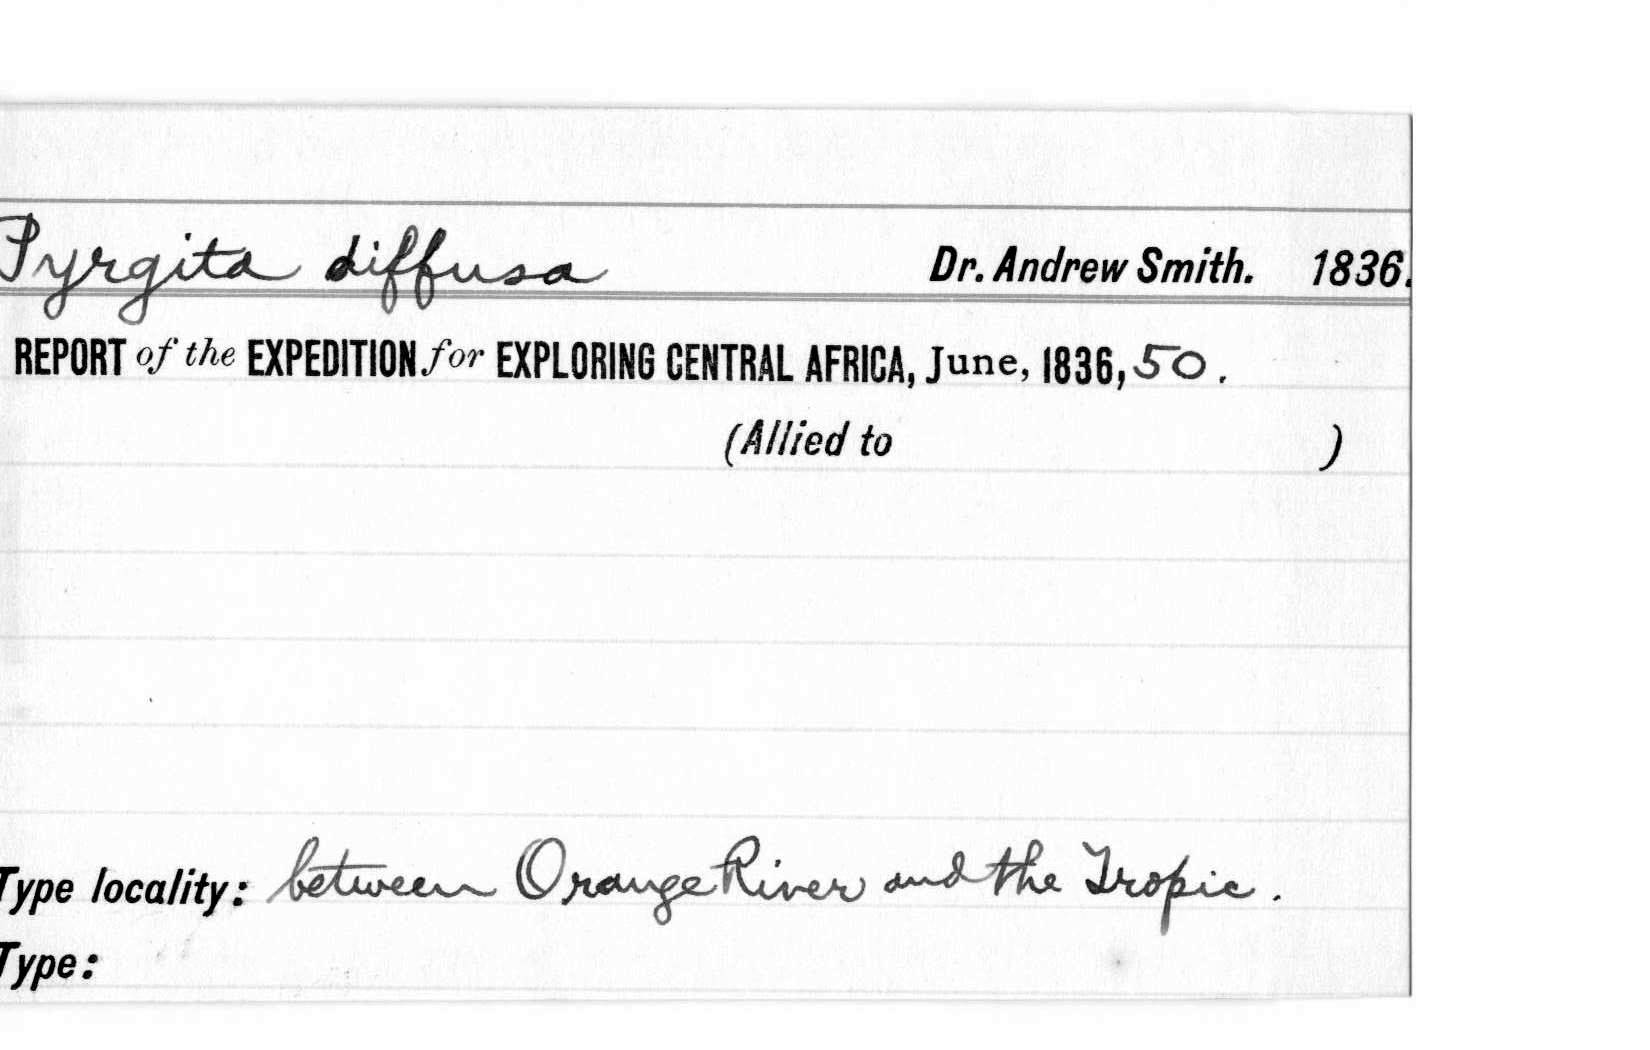 Pyrgita diffusa Dr. Andrew Smith. 1836.
REPORT of the EXPEDITION for EXPLORING CENTRAL AFRICA, June, 1836, 50.
(Allied to )
Type locality: between Orange River and the Tropic.
Type: